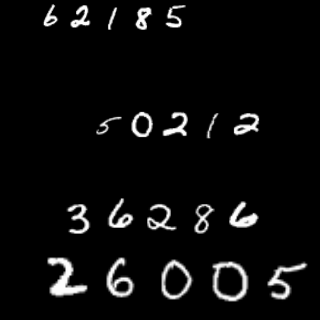 62185
50212
36286
26005